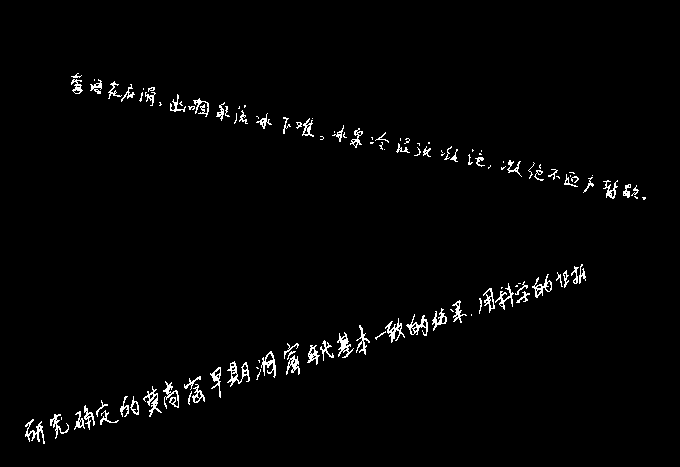 莺语花底滑,幽咽泉流冰下难。冰泉冷涩弦凝绝,凝绝不通声暂歇。
研究确定的莫高窟早期洞窟年代基本一致的结果,用科学的证据